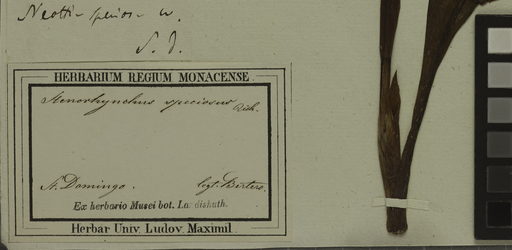 Neottia speciosa w.
S. D.
HERBARIUM REGIUM MONACENSE.
Stenorhynchus speciosus Rich.
St. Domingo. legt. Bertero.
Ex herbario Musei bot. Landishuth.
Herbar Univ. Ludov. Maximil